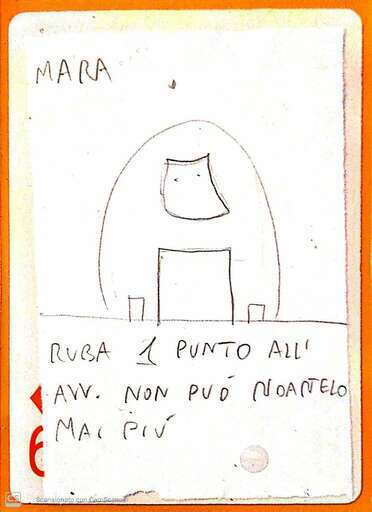 MARA
RUBA 1 PUNTO ALL'
AVV. NON PUÓ RIDARTELO
MAI PIÚ
6
Scansionato con CamScanner